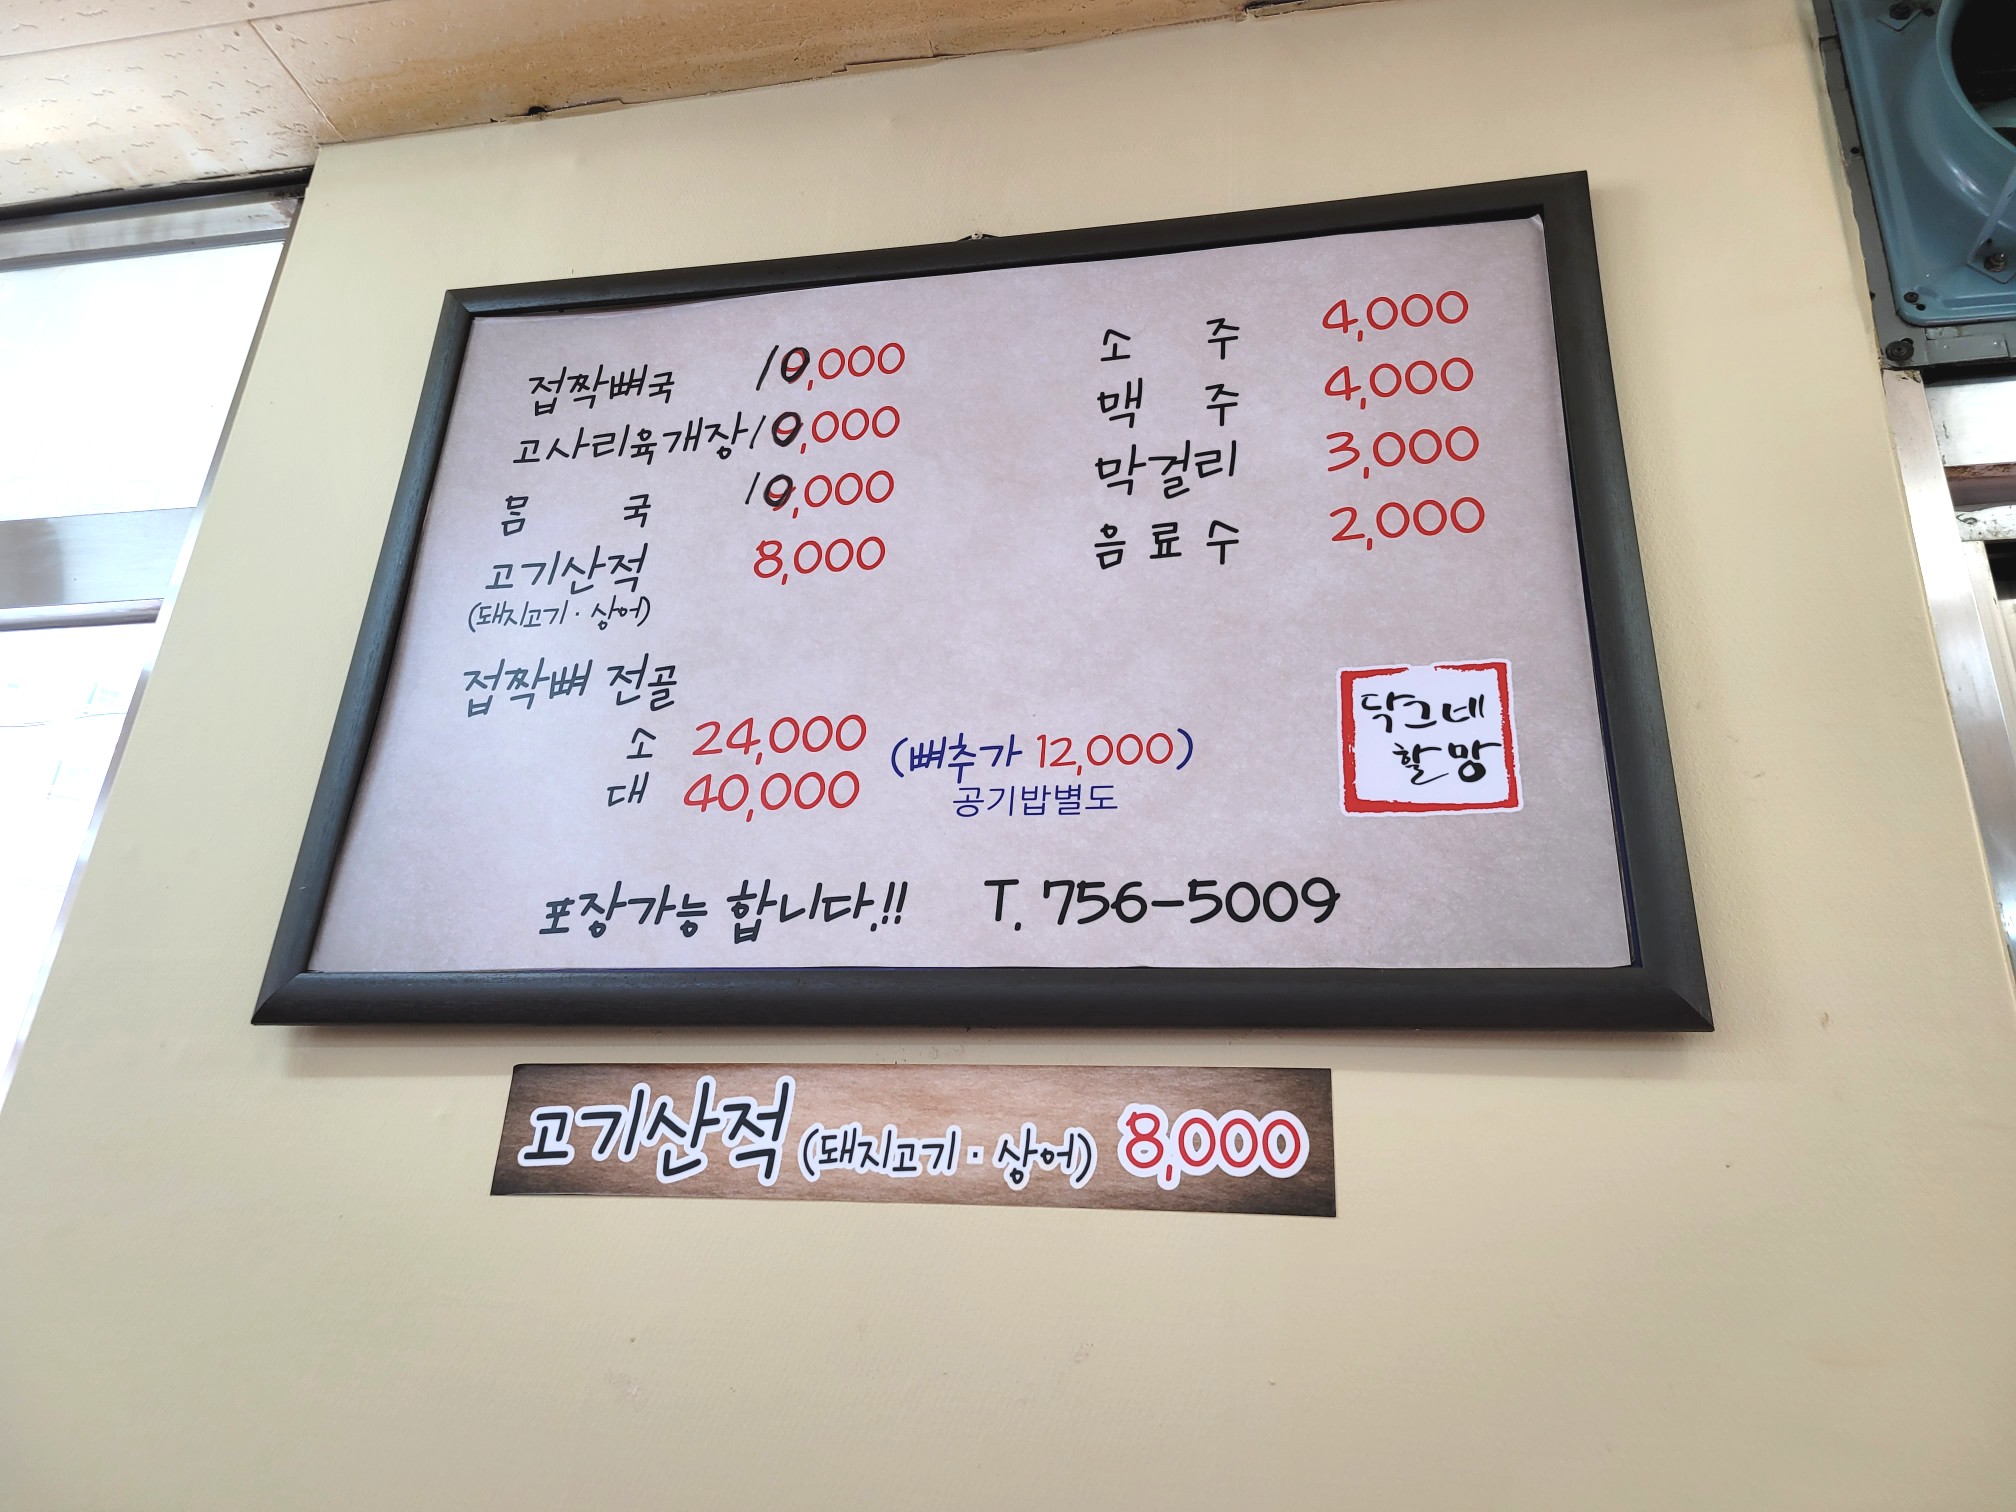 접짝뼈국 10,000
고사리육개장 10,000
몸 국 10,000
고기산적 8,000
(돼지고기 · 상어)
접짝뼈 전골
소 24,000 (뼈추가 12,000)
대 40,000 공기밥별도
소 주 4,000
맥 주 4,000
막걸리 3,000
음료수 2,000
닥그네
할망
포장가능 합니다.!! T. 756-5009
고기산적 (돼지고기 · 상어) 8,000